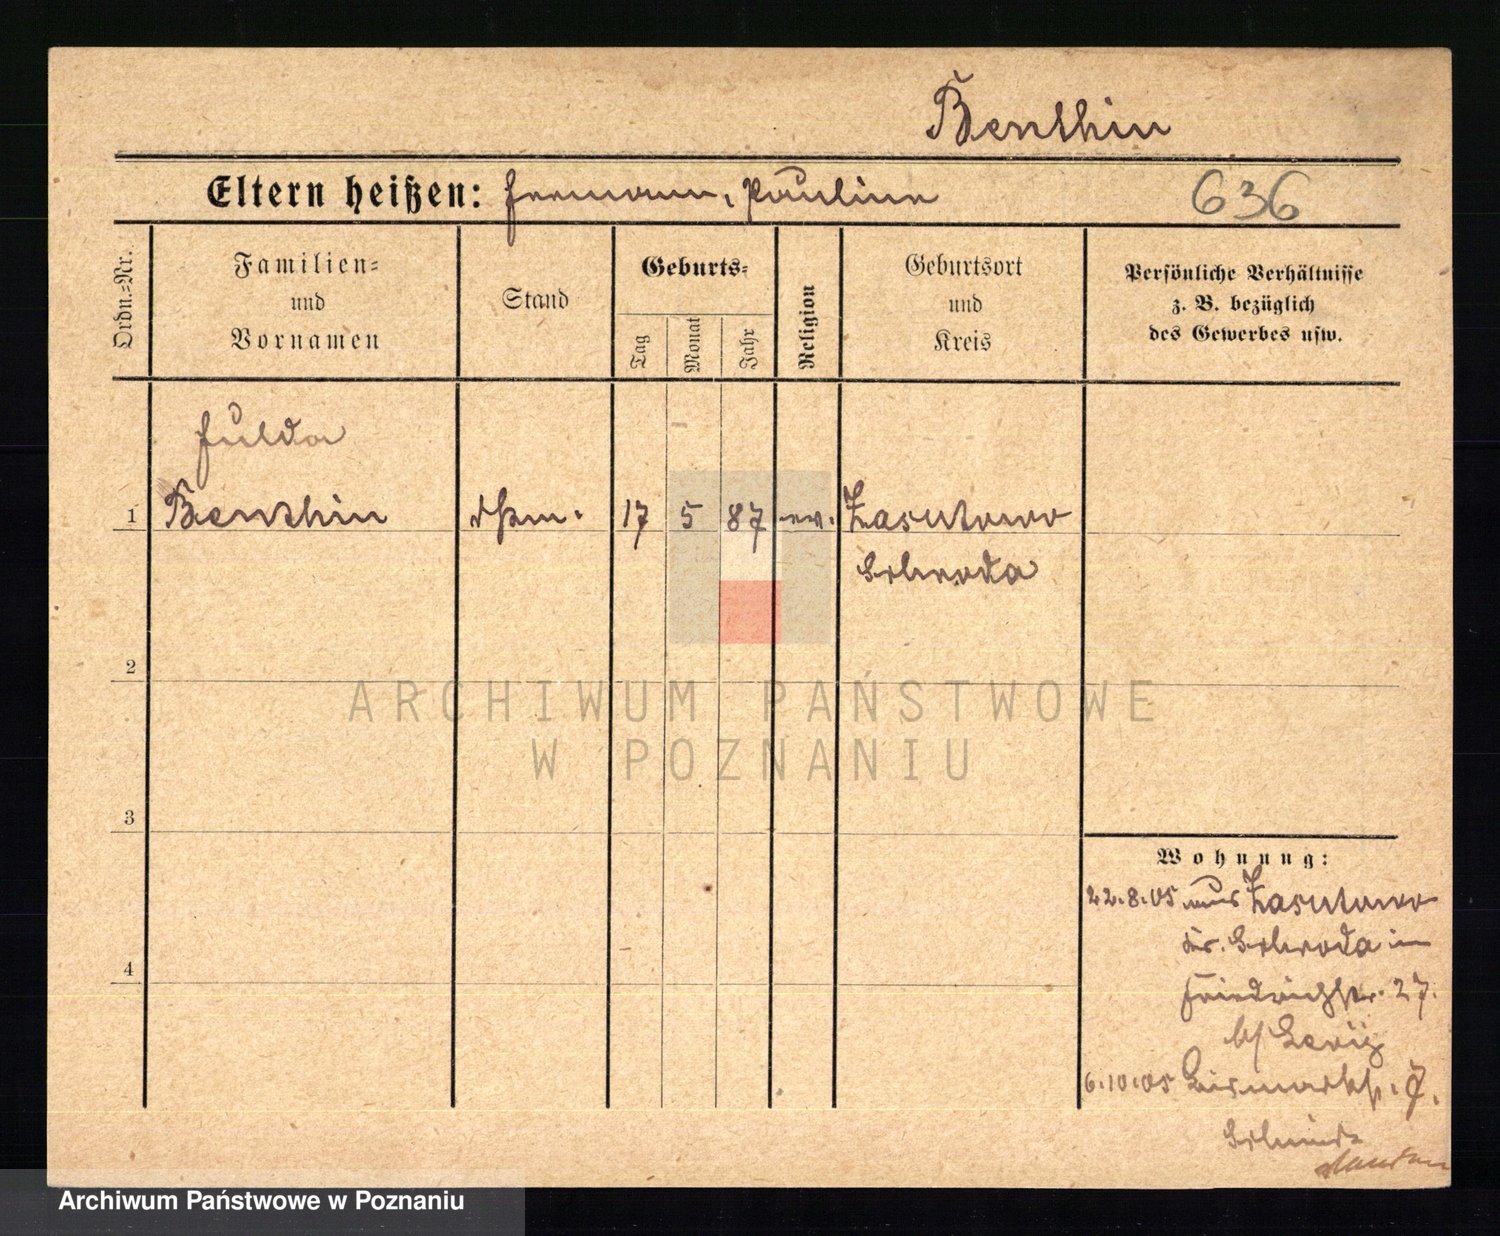 Benthin
Eltern heißen: Hermann, Pauline
636
Ordn.-Nr.
Familien-
und
Vornamen
Stand
Geburts-
Tag
Monat
Jahr
Religion
Geburtsort
und
Kreis
Persönliche Verhältnisse
z. B. bezüglich
des Gewerbes usw.
Hulda
1 Benthin 17 5 87 ev. Zasutowo
Schroda
2
3
4
ARCHIWUM PAŃSTWOWE
W POZNANIU
Wohnung:
22.8.05 aus Zasutowo
Kr. Schroda in
Friedrichstr. 27.
b/
6.10.05 Bismarckstr. 7.
Schmidt
Archiwum Państwowe w Poznaniu